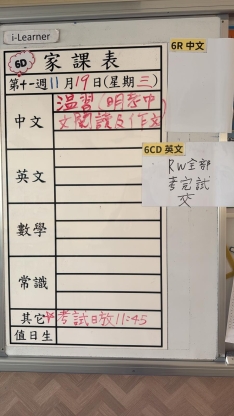 i-Learner
6D 家課表
第十一週11月19日(星期三)
中文 温習(明考中
文閱讀及作文
英文
數學
常識
其它 考試日放11:45
值日生
6R 中文
6CD 英文
RW全部
考完試
交